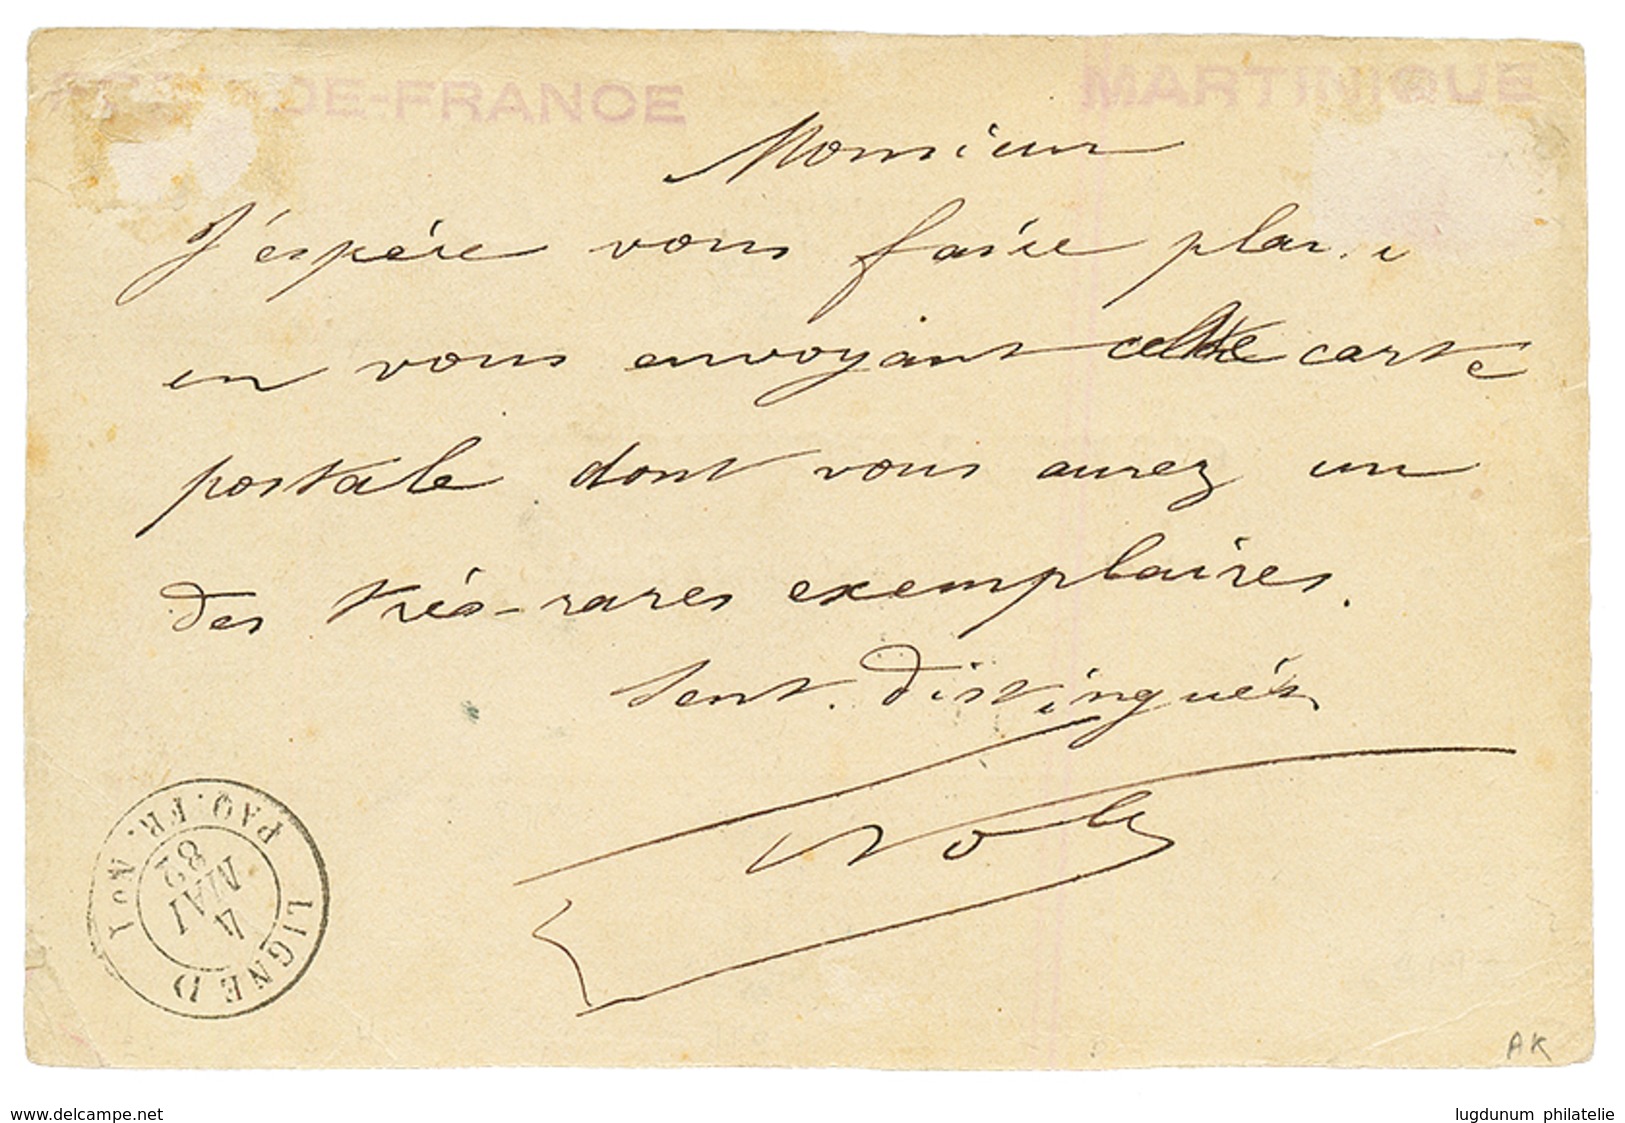 DE-FRANCE MARTINIQUE
Monsieur
J'espère vous faire plai
en vous envoyant cette carte
postale dont vous aurez un
des très-rares exemplaires.
Sent. distingués
LIGNE D PAQ. FR. No 1
4
MAI
82
AK
www.delcampe.net
lugdunum philatelie